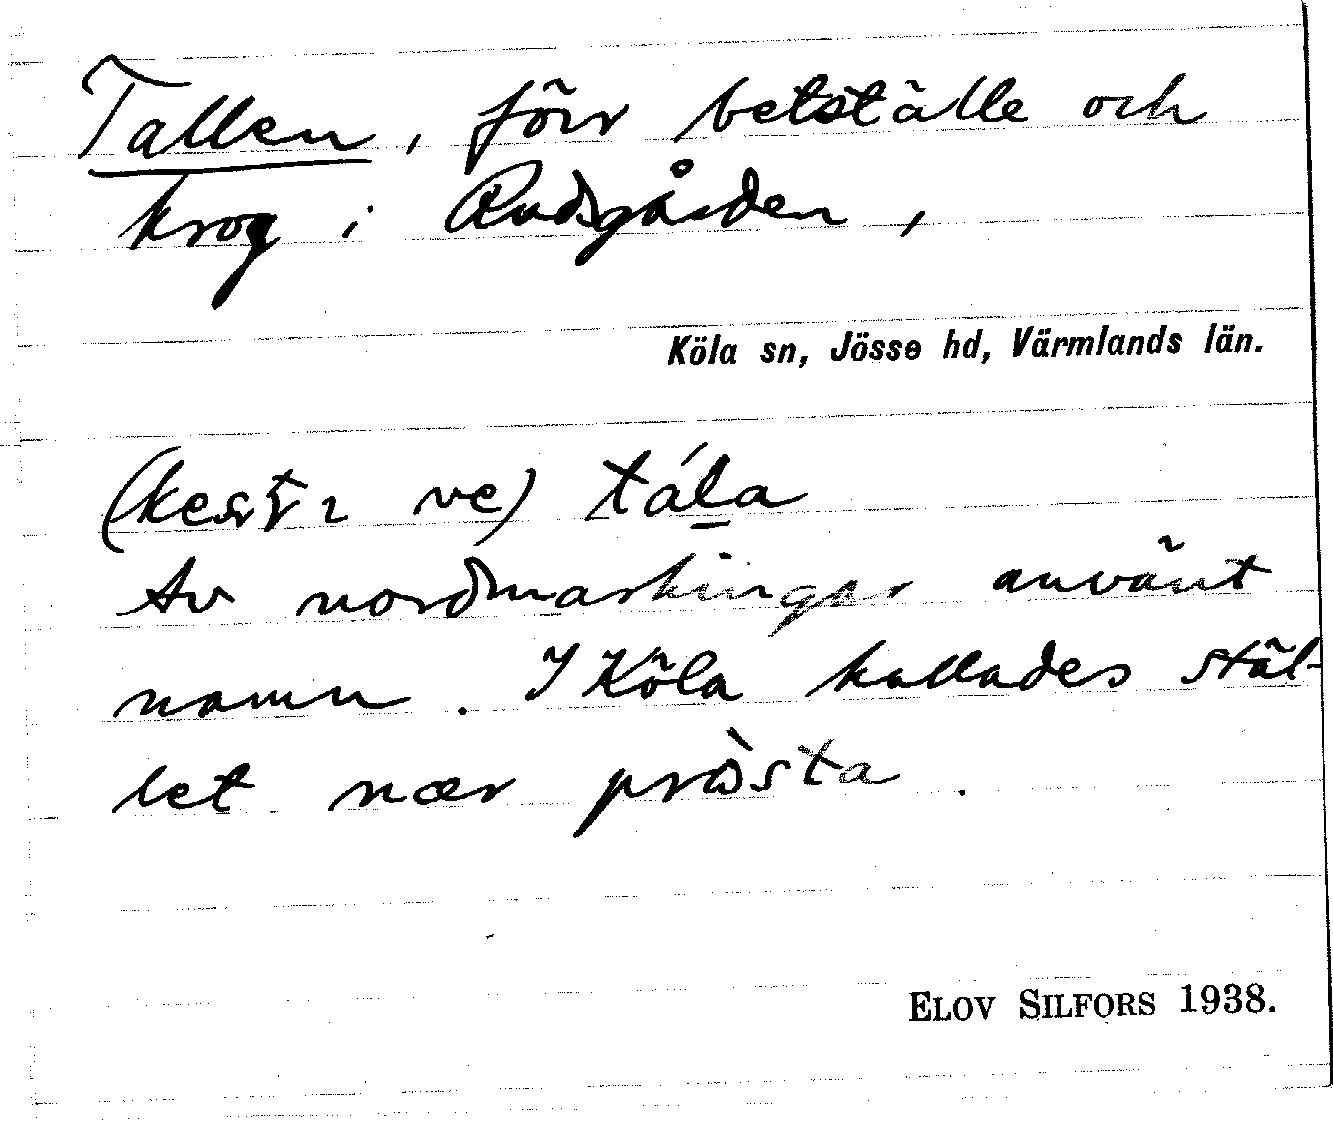 Tallen, förr betställe och
krog i Rudsgården,
Köla sn, Jösse hd, Värmlands län.
ve) tála
Av nordmarkingar använt
namn. I Köla kallades stäl-
let nær
ELOV SILFORS 1938.